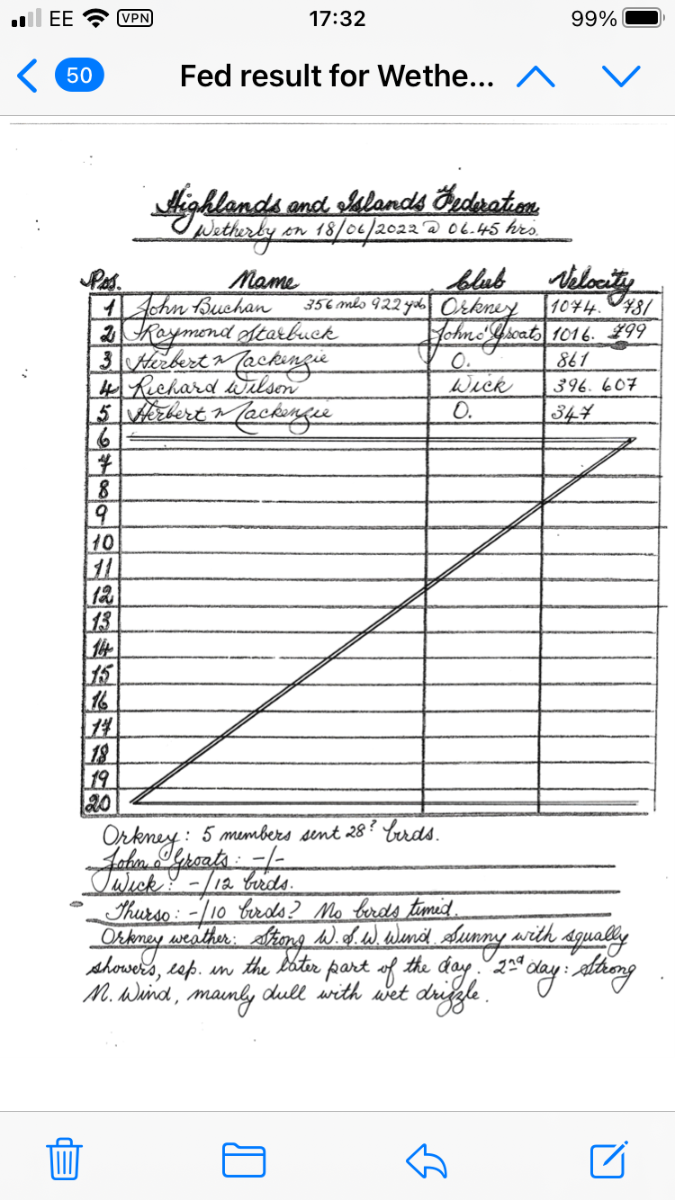 EE VPN 17:32 99%
50 Fed result for Wethe...
Highlands and Islands Federation
Wetherby on 18/06/2022 @ 06.45 hrs.
Pos. Name Club Velocity
1 John Buchan 356 mls 922 yds Orkney 1074. 781
2 Raymond Starbuck John o' Groats 1016. 799
3 Herbert Mackenzie O. 861
4 Richard Wilson Wick 396. 607
5 Herbert Mackenzie O. 347
6
7
8
9
10
11
12
13
14
15
16
17
18
19
20
Orkney: 5 members sent 28? birds.
John o' Groats: -/-
Wick: -/12 birds.
Thurso: -/10 birds? No birds timed.
Orkney weather: Strong W.S.W. Wind. Sunny with squally
showers, esp. in the later part of the day. 2nd day: Strong
N. Wind, mainly dull with wet drizzle.